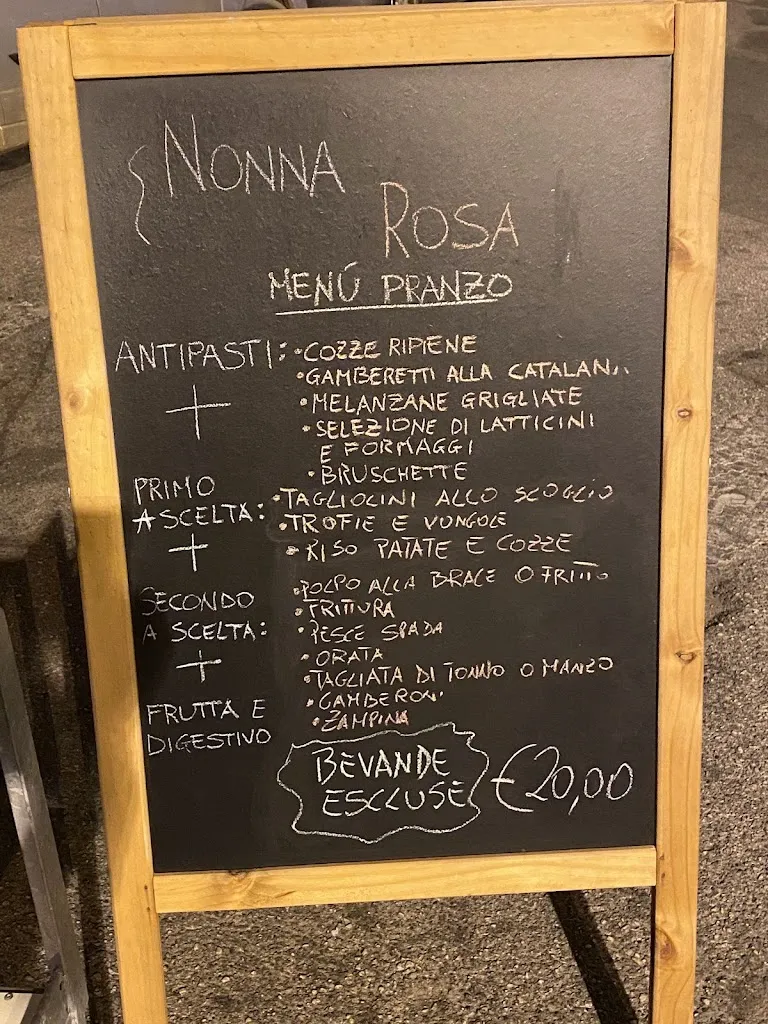 NONNA
ROSA
MENÚ PRANZO
ANTIPASTI: • COZZE RIPIENE
• GAMBERETTI ALLA CATALANA
+ • MELANZANE GRIGLIATE
• SELEZIONE DI LATTICINI
E FORMAGGI
• BRUSCHETTE
PRIMO
A SCELTA: • TAGLIOLINI ALLO SCOGLIO
• TROFIE E VONGOLE
+ • RISO PATATE E COZZE
SECONDO • POLPO ALLA BRACE O FRITTO
• FRITTURA
A SCELTA: • PESCE SPADA
• ORATA
+ • TAGLIATA DI TONNO O MANZO
• GAMBERONI
FRUTTA E • ZAMPINA
DIGESTIVO
BEVANDE
ESCLUSE €20,00